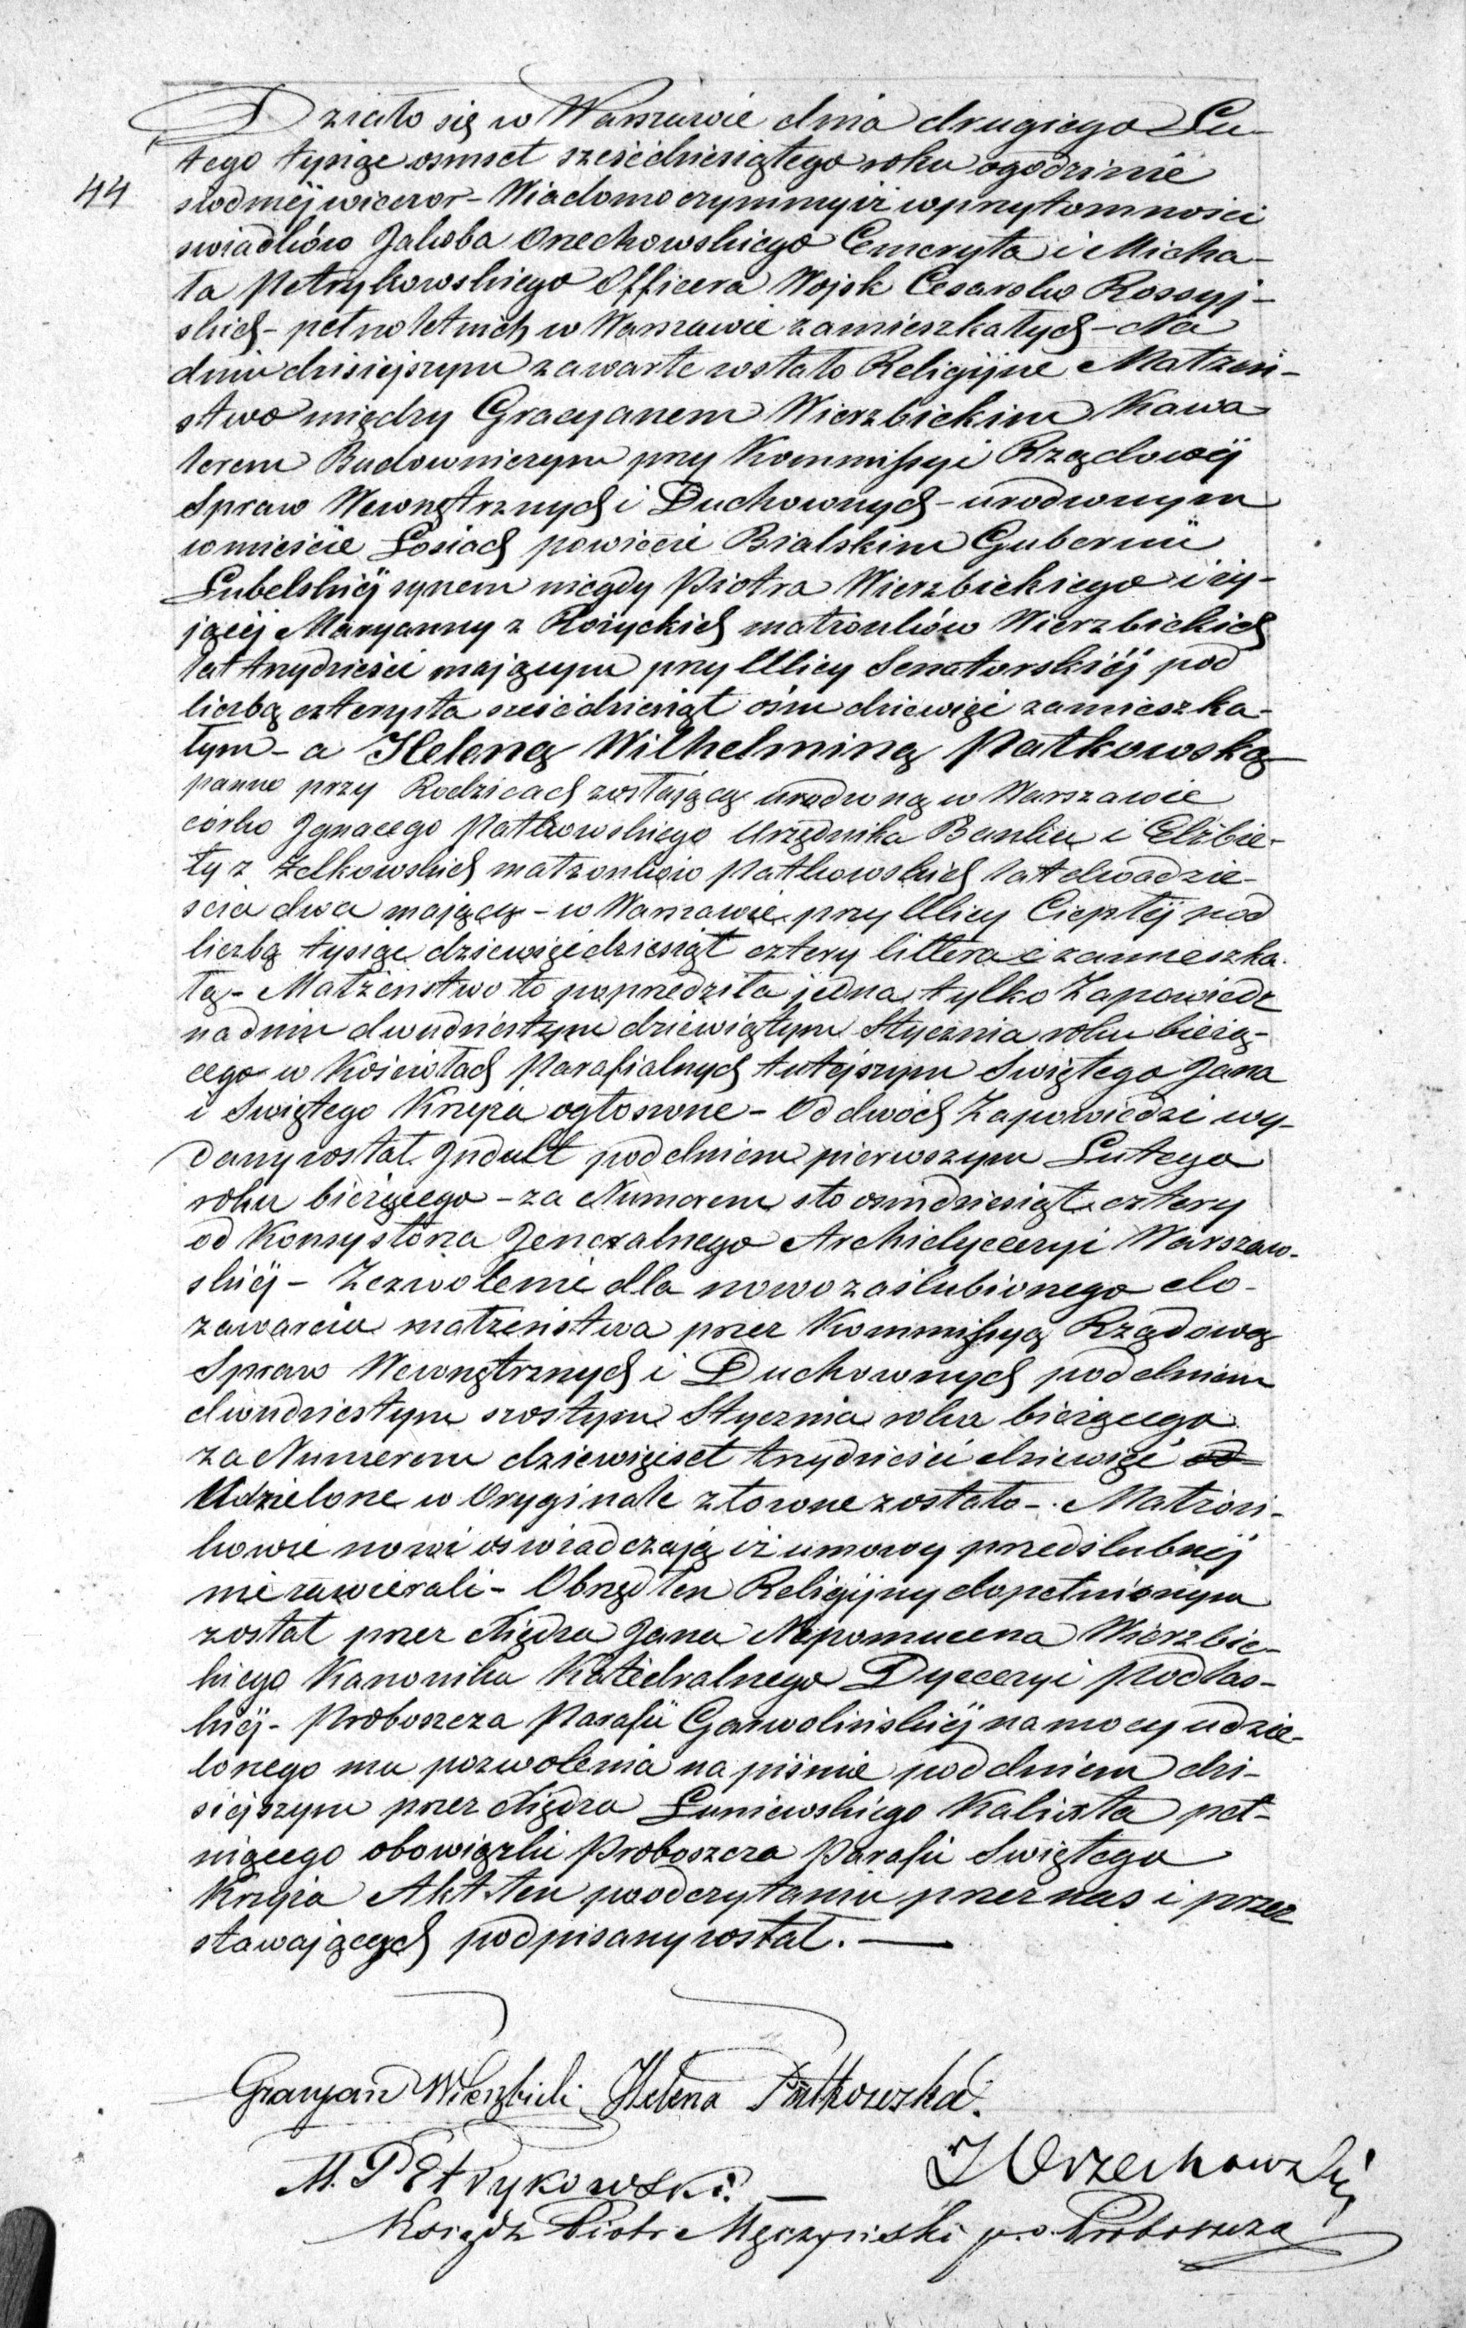 Działo się w Warszawie dnia drugiego Lu-
tego tysiąc osmset sześćdziesiątego roku o godzinie
44
siodmej wieczor - Wiadomo czynimy iż w przytomności
swiadków Jakóba Orzechowskiego Emeryta i Micha-
ła Petrykowskiego Officera Wojsk Cesarsko Rossyj-
skich - pełnoletnich w Warszawie zamieszkałych - Na
dniu dzisiejszym zawarte zostało Religijne Małżeń-
stwo między Gracyanem Wierzbickim Kawa-
lerem Budowniczym przy Kommissyi Rządowej
Spraw Wewnętrznych i Duchownych - urodzonym
w mieście Łosicach powiecie Bialskim Gubernii
Lubelskiej synem niegdy Piotra Wierzbickiego i ży-
jącej Maryanny z Rożyckich małżonków Wierzbickich
lat trzydzieści mającym przy Ulicy Senatorskiej pod
liczbą czterysta sześćdziesiąt ośm dziewięć zamieszka-
łym - a Heleną Wilhelminą Patkowską
panno przy Rodzicach zostającą urodzoną w Warszawie
córko Ignacego Patkowskiego Urzędnika Banku i Elżbie-
ty z Zelkowskich małżonków Patkowskich lat dwadzie-
ścia dwa mającą - w Warszawie przy Ulicy Ciepłej pod
liczbą tysiąc dziewięćdziesiąt cztery littera zamieszka-
łą - Małżeństwo to poprzedziła jedna tylko Zapowiedz
na dniu dwudziestym dziewiątym Stycznia roku bieżą-
cego w Kościołach Parafialnych tutejszym Swiętego Jana
i Swiętego Krzyża ogłoszone - Od dwóch Zapowiedzi wy-
dany został Indult pod dniem pierwszym Lutego
roku bieżącego - za Numerem sto ośmdziesiąt cztery
od Konsystorza Jeneralnego Archidyecezyi Warszaw-
skiej - Zezwolenie dla nowozaślubionego do
zawarcia małżeństwa przez Kommissyą Rządową
Spraw Wewnętrznych i Duchownych pod dniem
dwudziestym szostym Stycznia roku bieżącego
za Numerem dziewięćset trzydzieści dziewięć od
Udzielone w Oryginale złożone zostało - Małżon-
kowie nowi oswiadczają iż umowy przedślubnej
nie zawierali - Obrzęd ten Religijny dopełnionym
został przez Xiędza Jana Nepomucena Wierzbic-
kiego Kanonika Katedralnego Dyecezyi Podlas-
kiej - Proboszcza Parafii Garwolińskiej na mocy udzie-
lonego mu pozwolenia na piśmie pod dniem dzi-
siejszym przez Xiędza Łuniewskiego Kalixta peł-
niącego obowiązki Proboszcza Parafii Swiętego
Krzyża Akt ten po odczytaniu przez nas i przez
stawających podpisany został. —
Gracyan Wierzbicki Helena Patkowska.
M. Petrykowski. — J Orzechowski
Ksiądz Piotr Męczyński p. o. Proboszcza